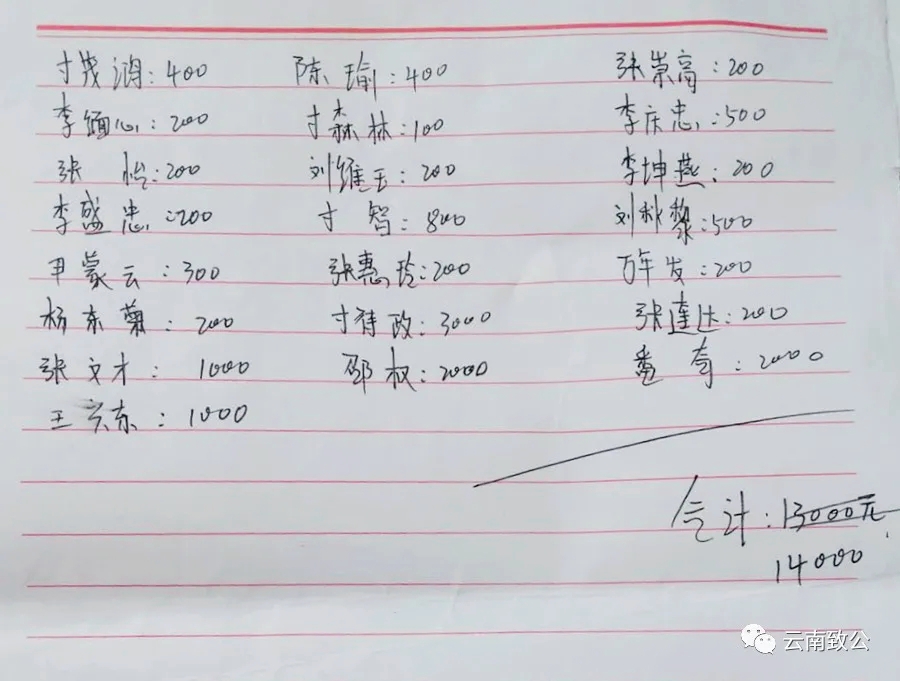 寸茂鸿:400 陈瑜:400 张崇高:200
李缅心:200 寸森林:100 李庆忠:500
张怡:200 刘维玉:200 李坤燕:200
李盛忠:200 寸智:800 刘秋黎:500
尹蒙云:300 张惠玲:200 万年发:200
杨东菊:200 寸待政:3000 张建达:200
张文才:1000 邵权:2000 番奇:2000
王东:1000
合计:13000元
14000
云南致公